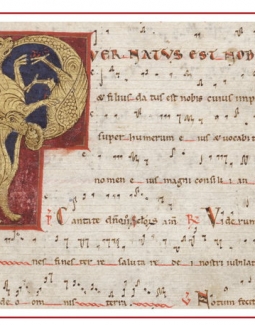 PVER NATVS EST NOB
& filius da tus est nobis cuius imp
super humerum e ius & vocabit
nomen e ius magni consili i an
Cantate dño R Viderun
nes fines ter re saluta re de i nostri iubilat
de o om nis terra. V Notum fecit